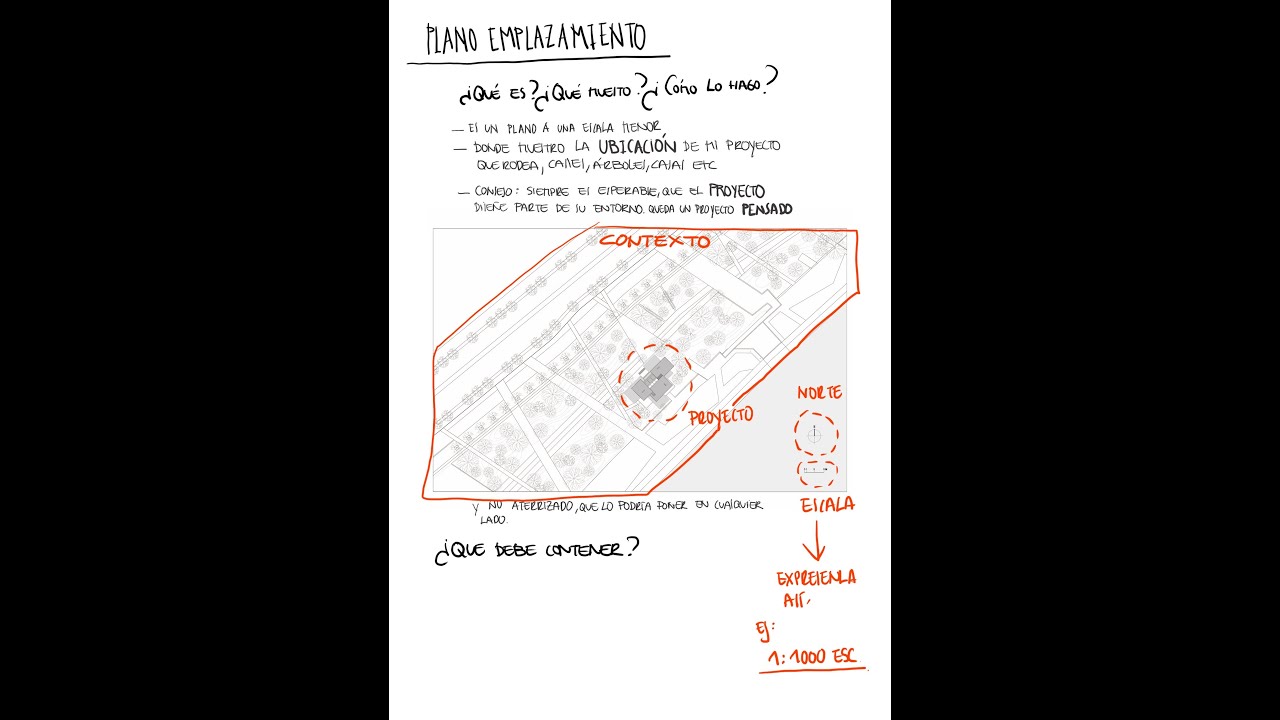 PLANO EMPLAZAMIENTO
¿QUÉ ES? ¿QUÉ MUESTRO? ¿CÓMO LO HAGO?
— ES UN PLANO A UNA ESCALA MENOR,
— DONDE MUESTRO LA UBICACIÓN DE MI PROYECTO
QUE RODEA, CALLES, ÁRBOLES, CASAS ETC
— CONSEJO: SIEMPRE ES ESPERABLE, QUE EL PROYECTO
DISEÑE PARTE DE SU ENTORNO. QUEDA UN PROYECTO PENSADO
CONTEXTO
PROYECTO
NORTE
ESCALA
Y NO ATERRIZADO, QUE LO PODRÍA PONER EN CUALQUIER
LADO.
¿QUE DEBE CONTENER?
EXPRESENLA
ASÍ.
EJ:
1:1000 ESC